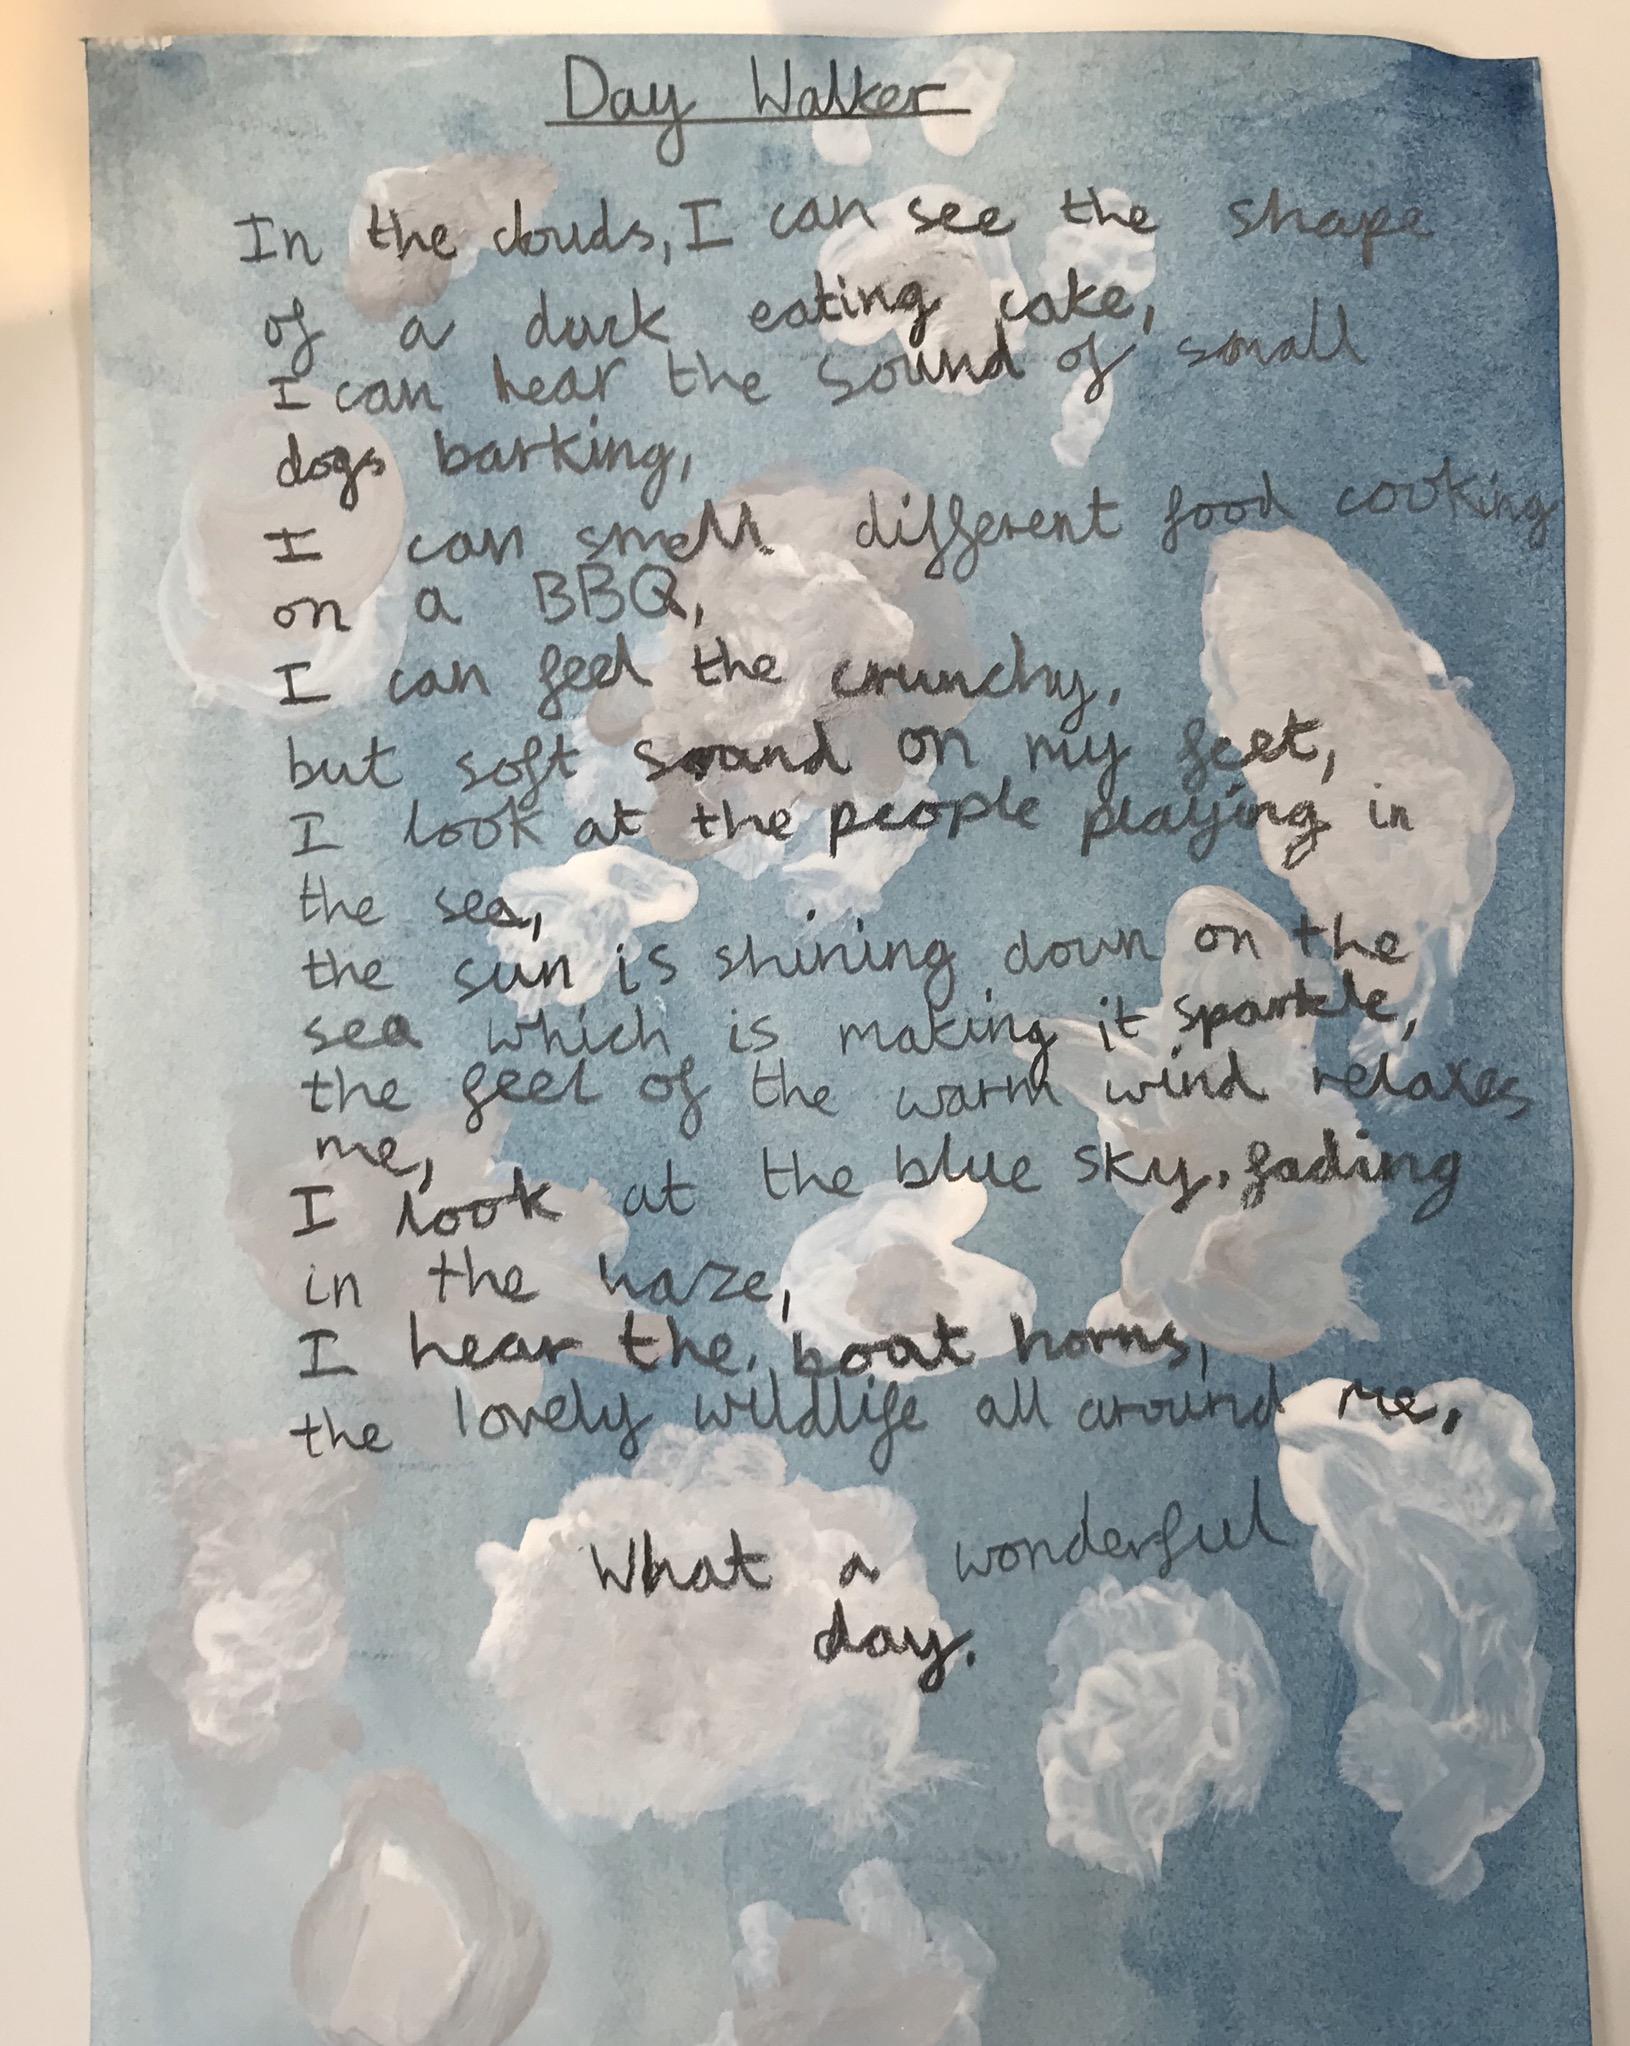 Day Walker
In the clouds, I can see the shape
of a duck eating cake,
I can hear the sound of small
dogs barking,
I can smell different food cooking
on a BBQ,
I can feel the crunchy,
but soft sand on my feet,
I look at the people playing in
the sea,
the sun is shining down on the
sea which is making it sparkle,
the feel of the warm wind relaxes
me,
I look at the blue sky, fading
in the haze,
I hear the boat horns,
the lovely wildlife all around me,
What a wonderful
day.